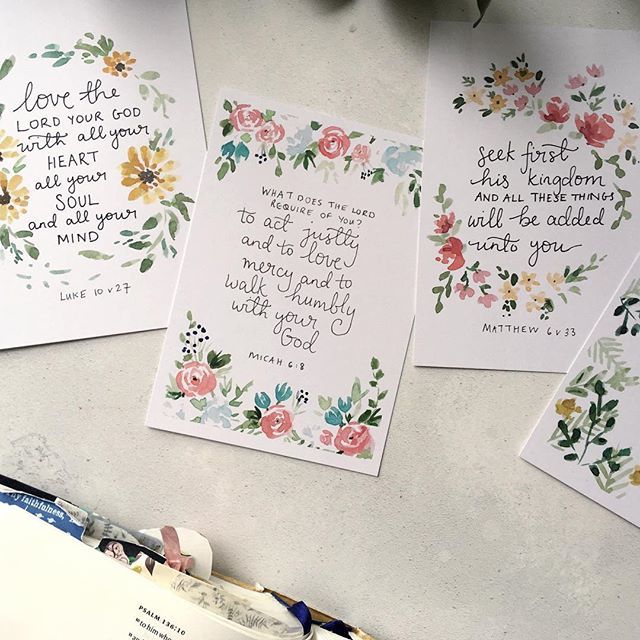 love the
LORD YOUR GOD
with all your
HEART
all your
SOUL
and all your
MIND
LUKE 10 v 27
WHAT DOES THE LORD
REQUIRE OF YOU?
to act justly
and to love
mercy and to
walk humbly
with your
God
MICAH 6:8
seek first
his kingdom
AND ALL THESE THINGS
will be added
unto you
MATTHEW 6 v 33
faithfulness,
PSALM 136:10
to him who